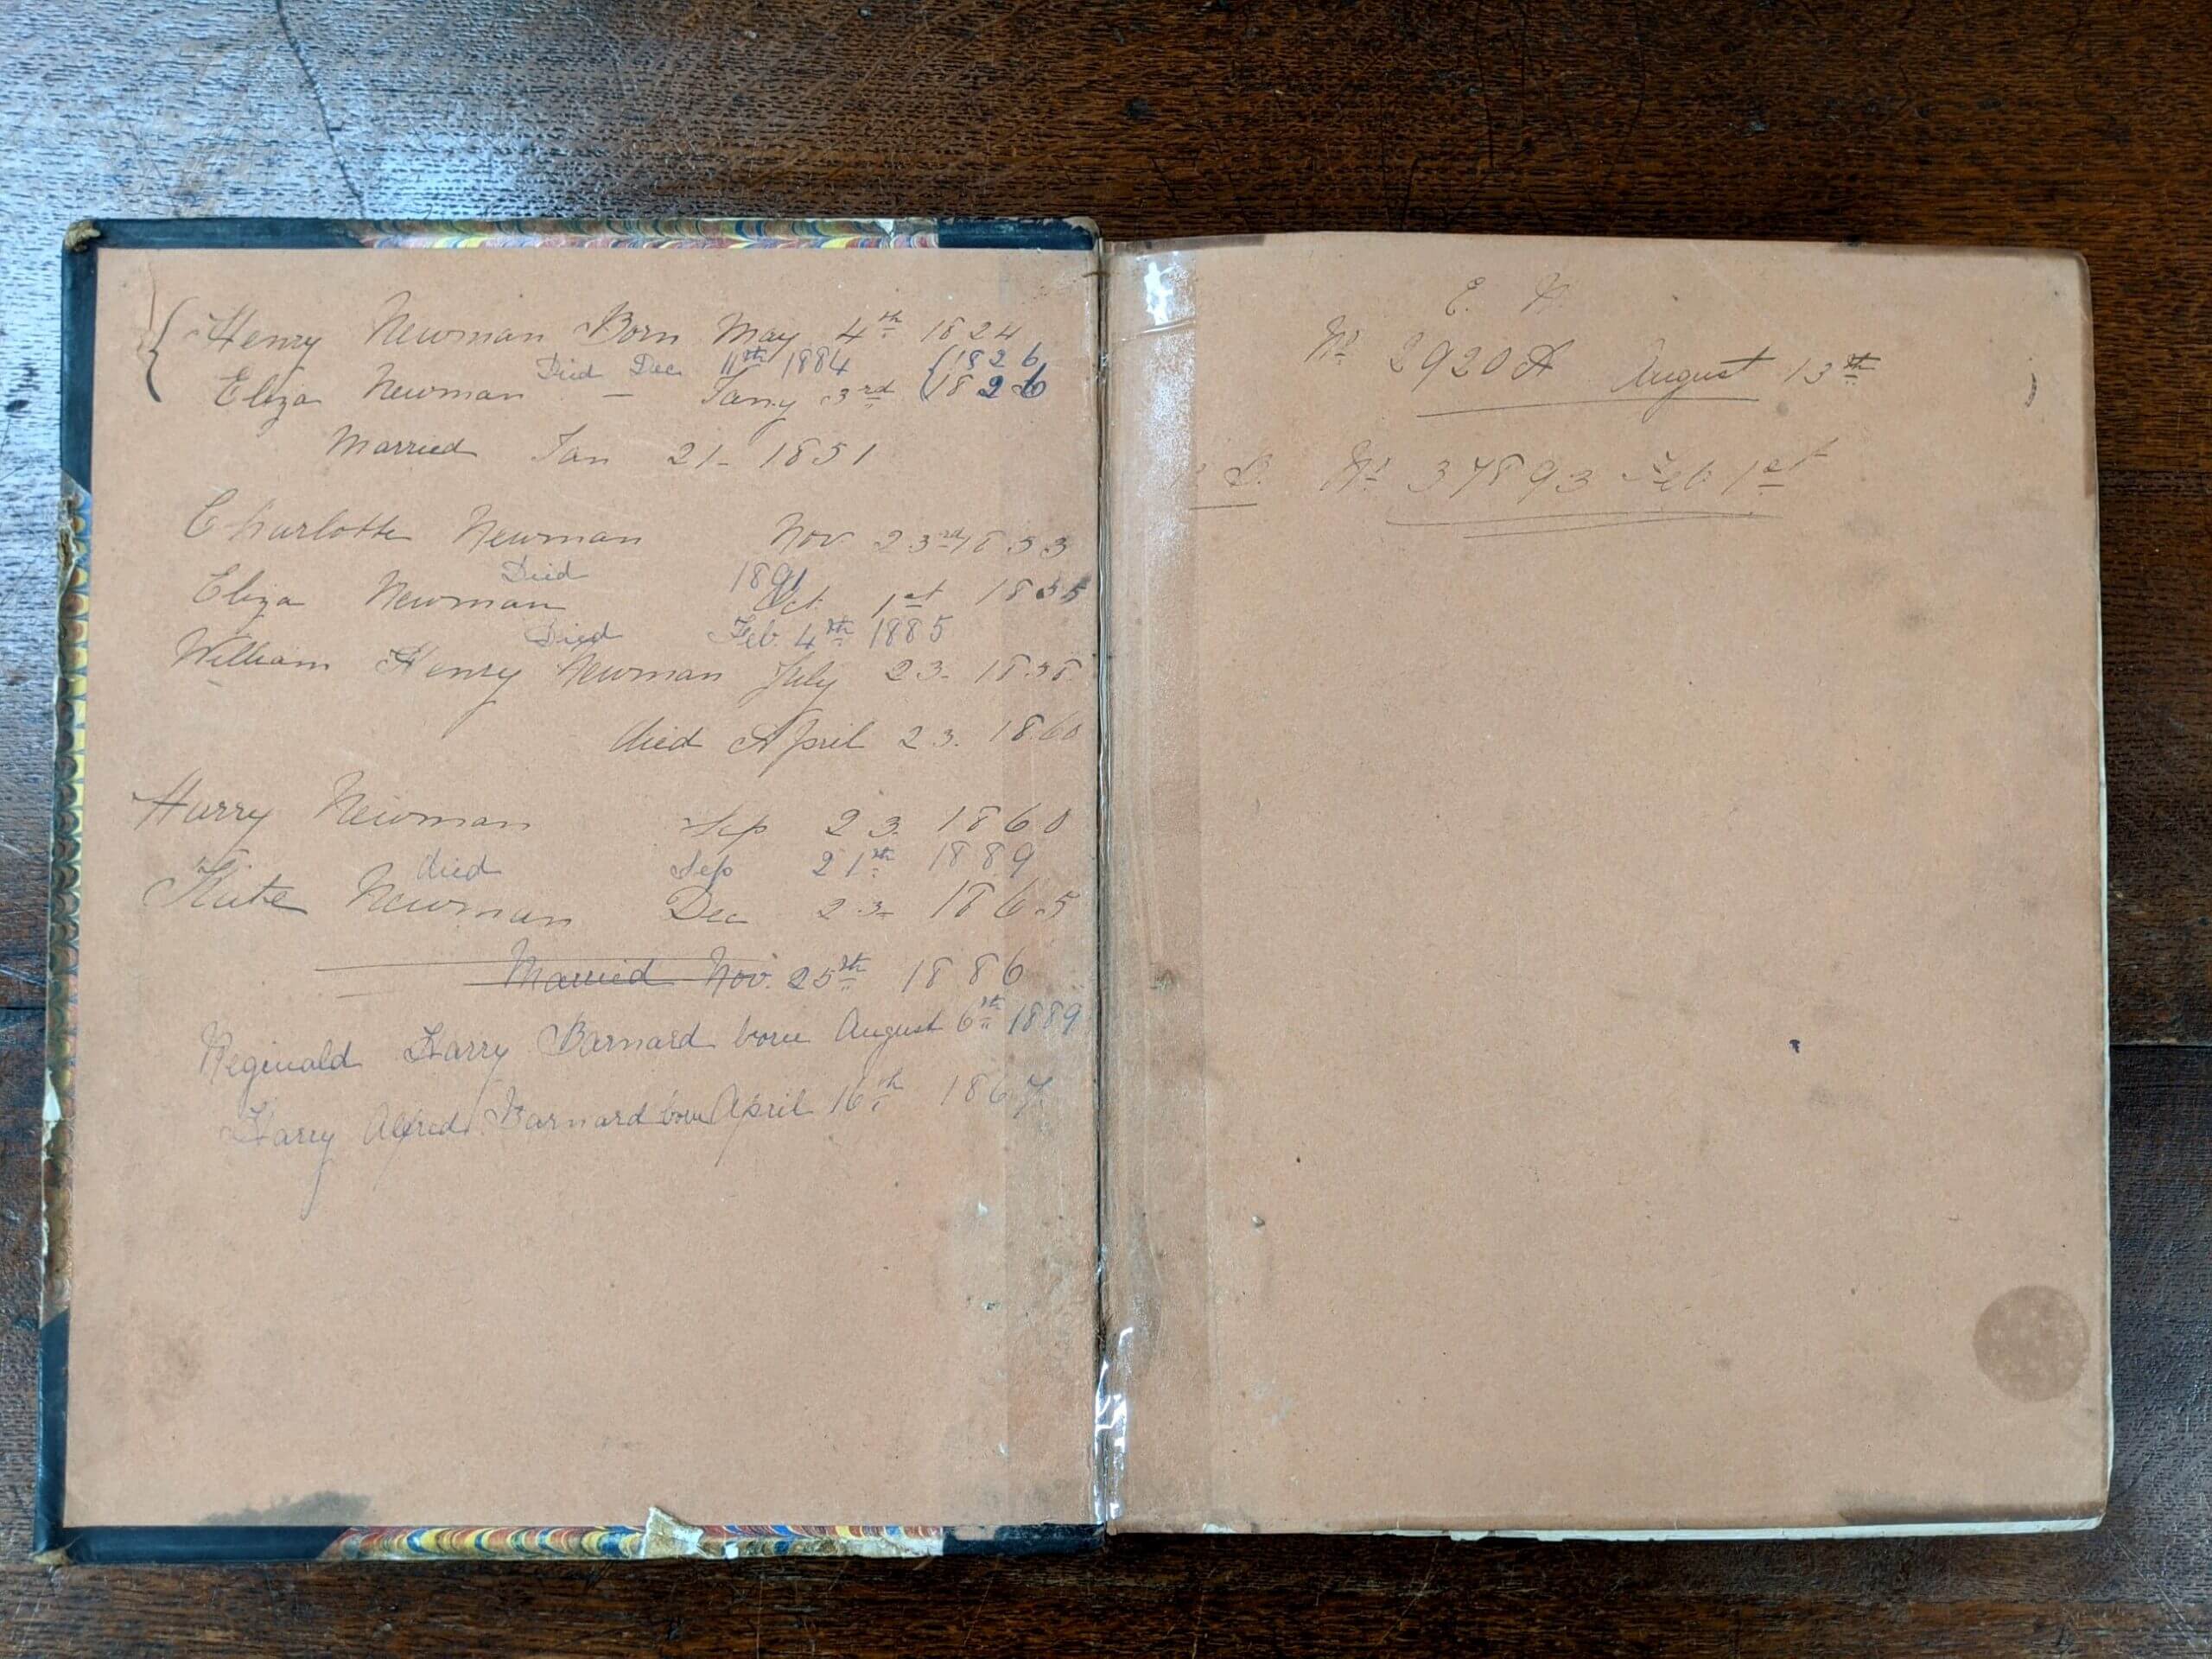 Henry Newman Born May 4th 1824
Died Dec 11th 1884 1826
Eliza Newman — Jany 3rd 1826
Married Jan 21- 1851
Charlotte Newman Nov 23rd 1853
Died 1891
Eliza Newman Oct 1st 1855
Died Feb. 4th 1885
William Henry Newman July 23- 1858
died April 23. 1860
Harry Newman Sep 23. 1860
died Sep 21st 1889
Kate Newman Dec 23- 1865
Married Nov. 25th 1886
Reginald Harry Barnard born August 6th 1889
Harry Alfred Barnard born April 16th 1867
E. N.
No 2920A August 13th
No 37893 Feb 1st